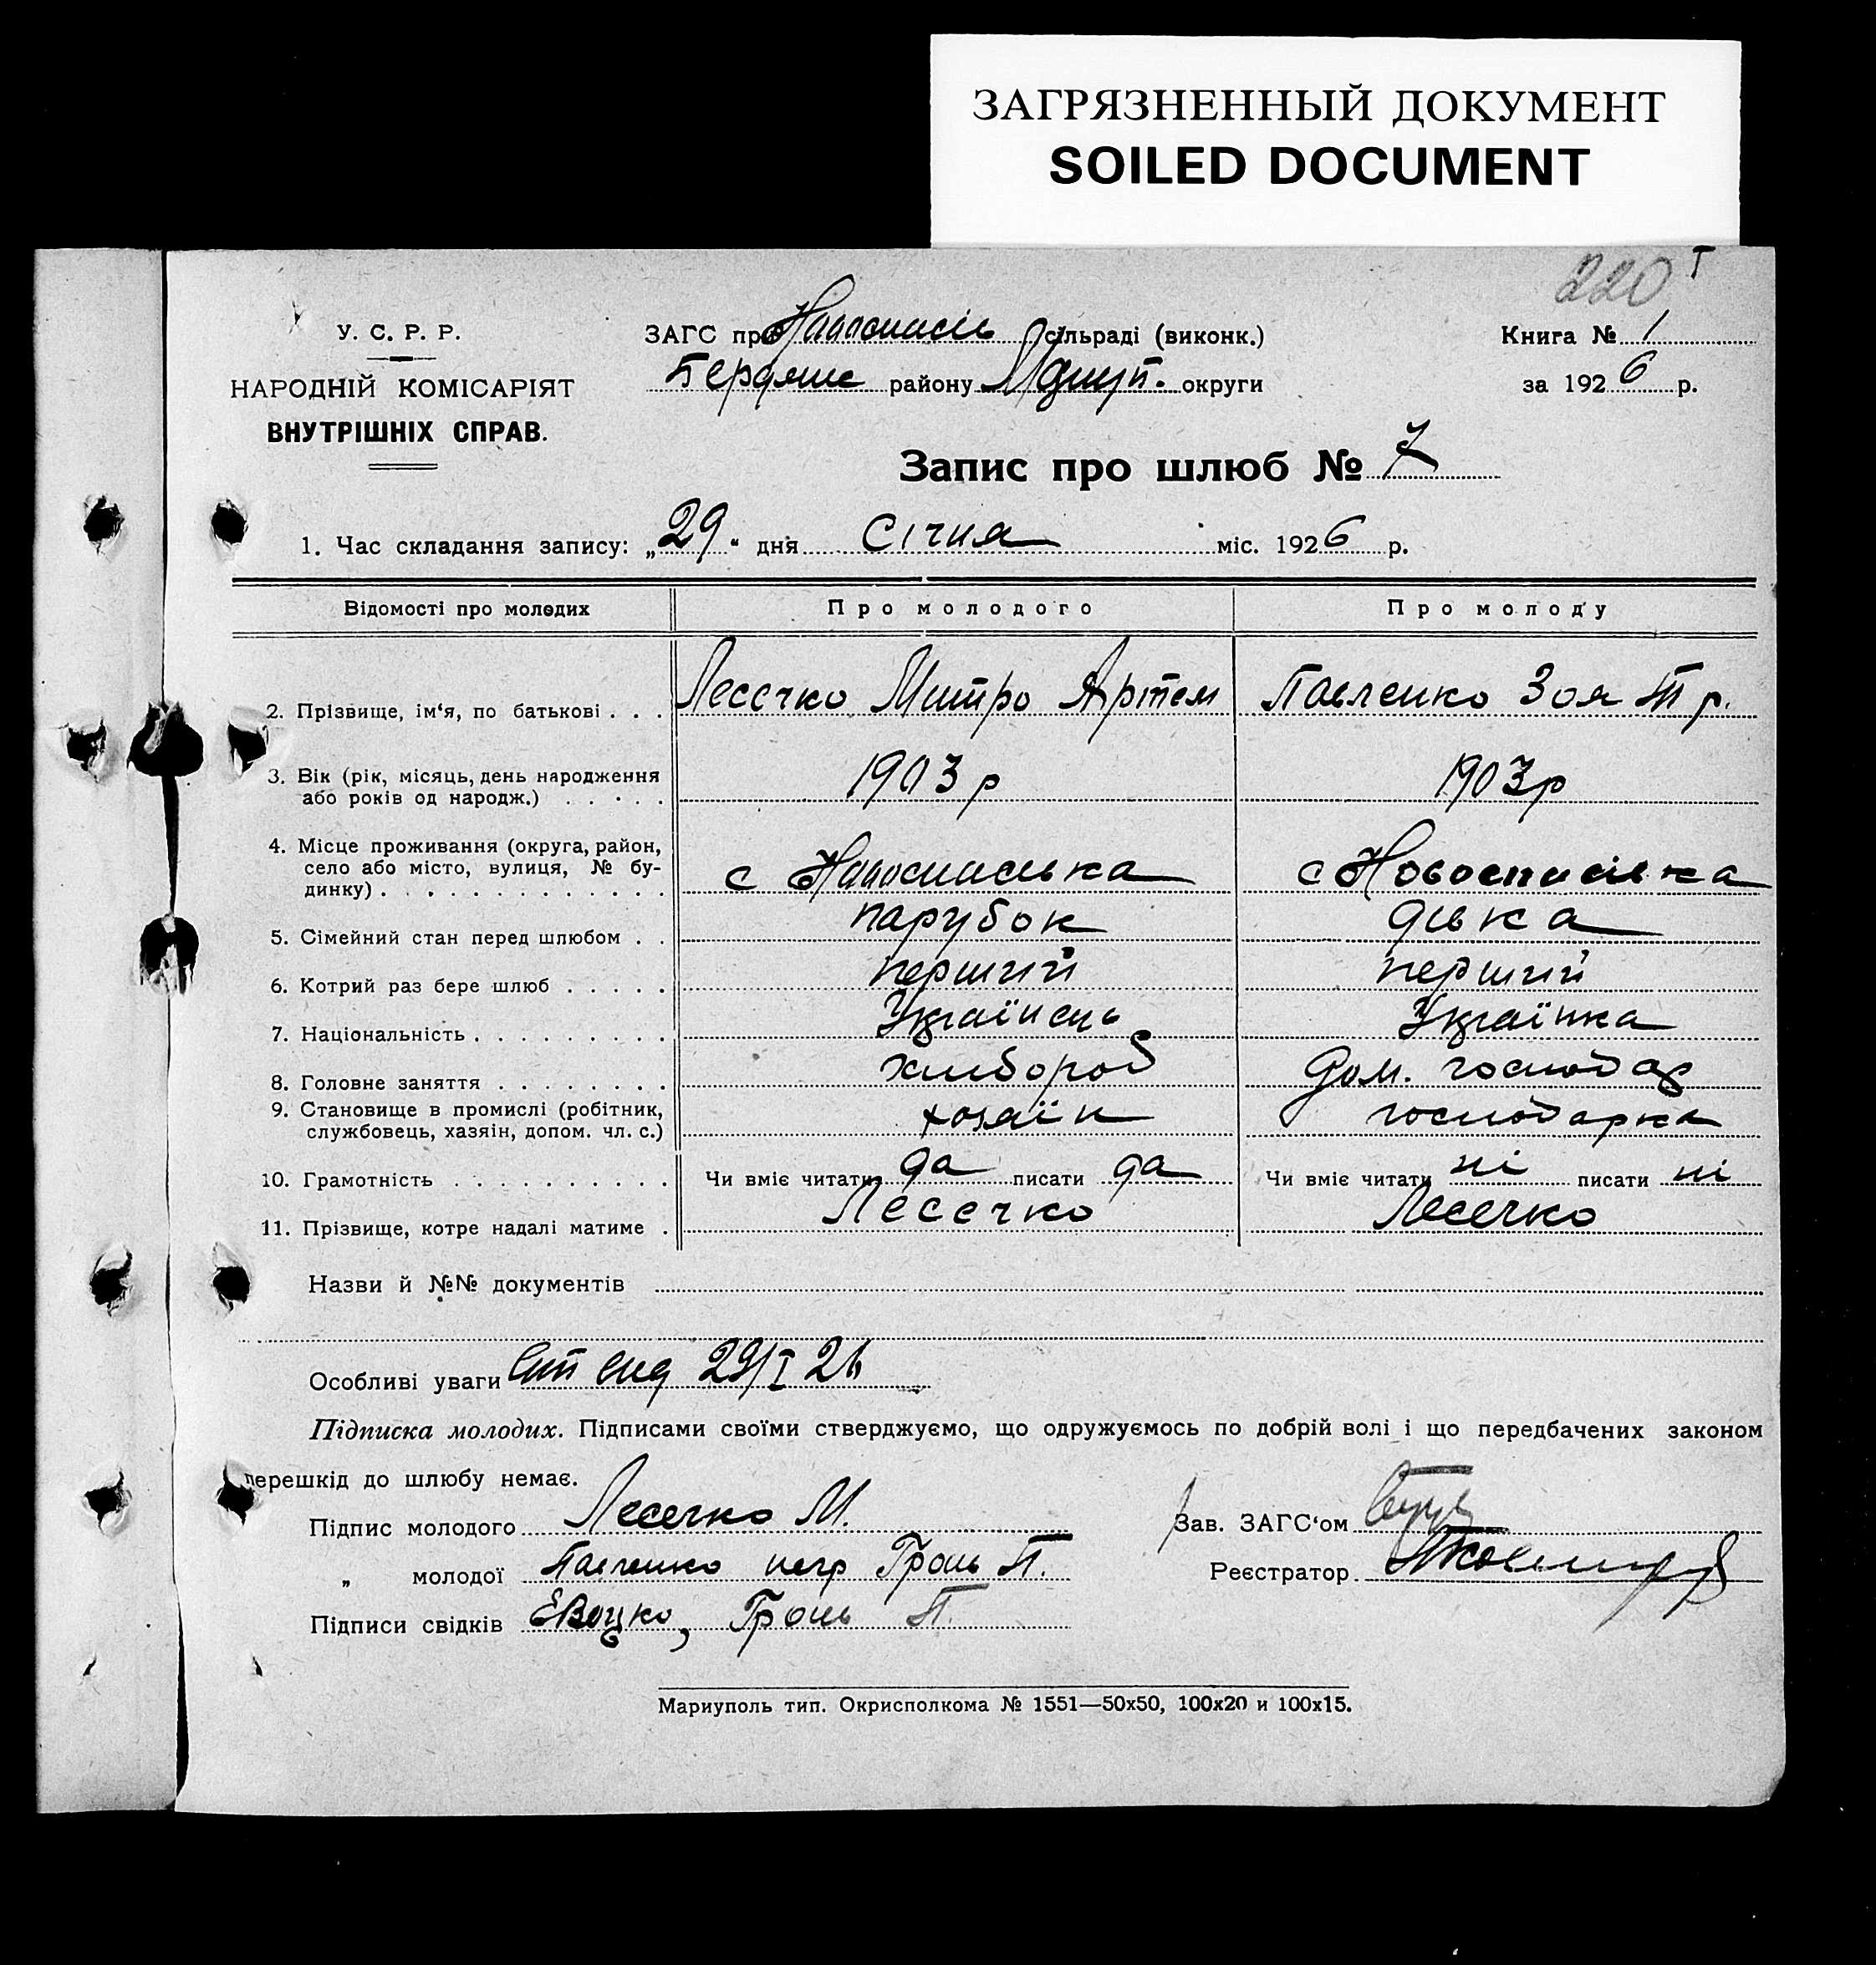 ЗАГРЯЗНЕННЫЙ ДОКУМЕНТ
SOILED DOCUMENT
220 Т
У. С. Р. Р.
НАРОДНІЙ КОМІСАРІЯТ
ВНУТРІШНІХ СПРАВ.
ЗАГС при сільраді (виконк.)
Бердянс району Маріуп. округи
Книга № 1
за 1926 р.
Запис про шлюб № 7
1. Час складання запису: „29“ дня Січня міс. 1926 р.
Відомості про молодих Про молодого Про молоду
2. Прізвище, ім‘я, по батькові . . . Лесечко Митро Артем Павленко Зоя Тр.
3. Вік (рік, місяць, день народження
або років од народж.) . . . . . 1903 р 1903 р
4. Місце проживання (округа, район,
село або місто, вулиця, № бу-
динку) . . . . . . . . . . . . . с Новоспасівка с Новоспасівка
5. Сімейний стан перед шлюбом . . парубок дівка
6. Котрий раз бере шлюб . . . . . перший перший
7. Національність . . . . . . . . . Українець Українка
8. Головне заняття . . . . . . . . хлібороб Дом. господар
9. Становище в промислі (робітник,
службовець, хазяін, допом. чл. с.) хозяїн господарка
10. Грамотність . . . . . . . . . . Чи вміє читати да писати да Чи вміє читати ні писати ні
11. Прізвище, котре надалі матиме . Лесечко Лесечко
Назви й №№ документів
Особливі уваги 29/I 26
Підписка молодих. Підписами своїми стверджуємо, що одружуємось по добрій волі і що передбачених законом
перешкід до шлюбу немає.
Підпис молодого Лесечко М.
Зав. ЗАГС‘ом
„ молодої Павленко негр Гроль П.
Реєстратор
Підписи свідків Гроль П.
Мариуполь тип. Окрисполкома № 1551—50х50, 100х20 и 100х15.